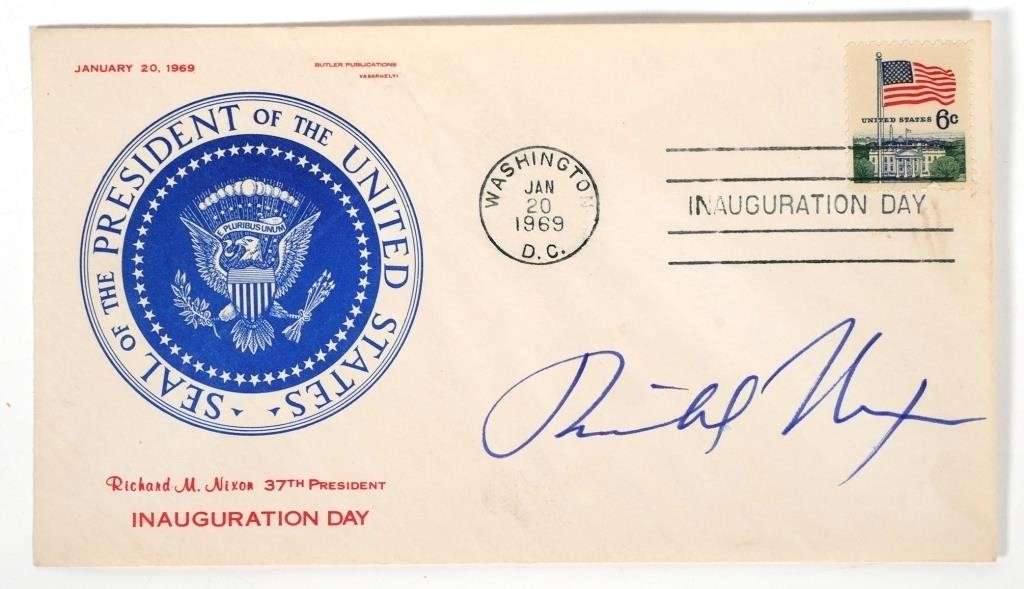 JANUARY 20, 1969
BUTLER PUBLICATIONS
VASARHELYI
SEAL OF THE PRESIDENT OF THE UNITED STATES
E PLURIBUS UNUM
Richard M. Nixon 37TH PRESIDENT
INAUGURATION DAY
WASHINGTON
JAN
20
1969
D.C.
UNITED STATES 6c
INAUGURATION DAY
Richard Nixon